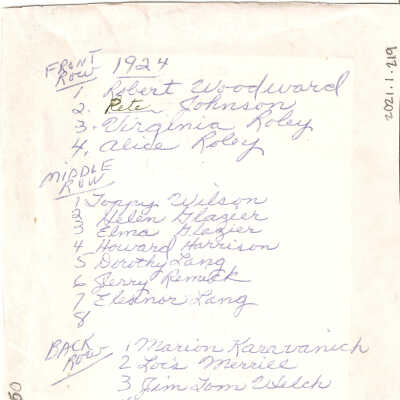 FRONT ROW 1924
1 Robert Woodward
2. Pete Johnson
3. Virginia Roley
4. Alice Roley
MIDDLE ROW
1 Toppy Wilson
2 Helen Glazier
3 Elma Glazier
4 Howard Harrison
5 Dorothy Lang
6 Jerry Remick
7 Eleanor Lang
8
BACK ROW
1 Marion Karavanich
2 Lois Merrill
3 Jim Tom Welch
2021.1.219
50